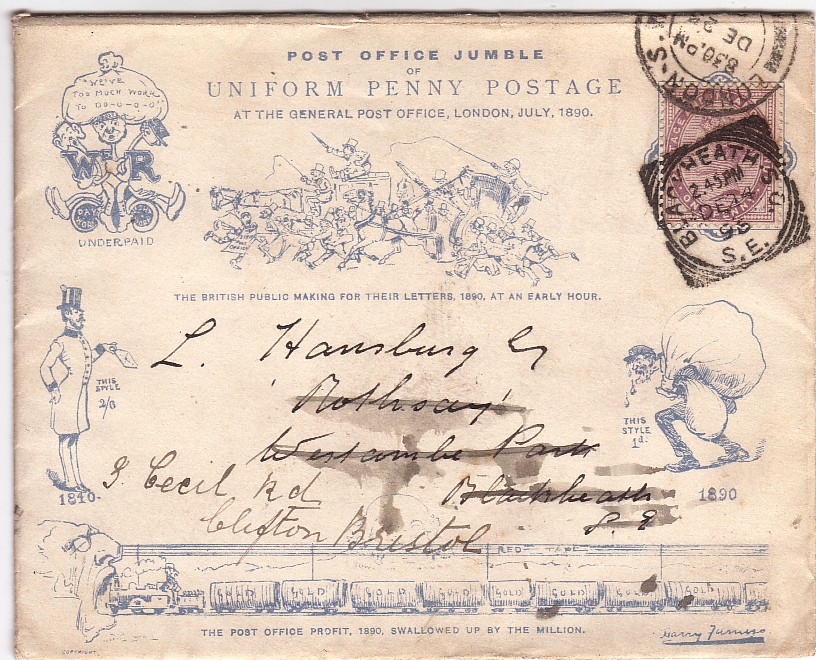 POST OFFICE JUMBLE
OF
UNIFORM PENNY POSTAGE
AT THE GENERAL POST OFFICE, LONDON, JULY, 1890.
"WE'VE
TOO MUCH WORK
TO DO-O-O-O"
W R
DAY
UNDERPAID
LONDON
8.30.PM
DE
BLACKHEATH S.O
2.45PM
DE14
95
S.E.
THE BRITISH PUBLIC MAKING FOR THEIR LETTERS, 1890, AT AN EARLY HOUR.
THIS
STYLE
2/6
1840.
THIS
STYLE
1d.
1890
L. Hansburg Esq
Rothsay
Westcombe Park
Blackheath
S.E
3 Cecil Rd
Clifton Bristol
RED TAPE
GOLD GOLD GOLD GOLD GOLD GOLD GOLD GOLD
THE POST OFFICE PROFIT, 1890, SWALLOWED UP BY THE MILLION.
Harry Furniss
COPYRIGHT.